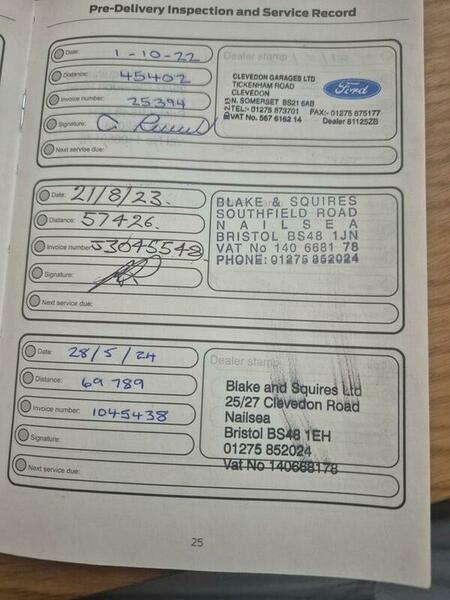 Pre-Delivery Inspection and Service Record
Date: 1-10-22
Distance: 45402
Invoice number: 25394
Signature:
Next service due:
Dealer stamp
CLEVEDON GARAGES LTD
TICKENHAM ROAD
CLEVEDON
N. SOMERSET BS21 6AB
TEL:- 01275 873701 FAX:- 01275 875177
VAT No. 567 6162 14 Dealer 81125ZB
Ford
Date: 21/8/23.
Distance: 57426.
Invoice number: 53045548
Signature:
Next service due:
BLAKE & SQUIRES
SOUTHFIELD ROAD
NAILSEA
BRISTOL BS48 1JN
VAT No 140 6681 78
PHONE: 01275 852024
Date: 28/5/24
Distance: 69 789
Invoice number: 1045438
Signature:
Next service due:
Dealer stamp
Blake and Squires Ltd
25/27 Clevedon Road
Nailsea
Bristol BS48 1EH
01275 852024
Vat No 140668178
25